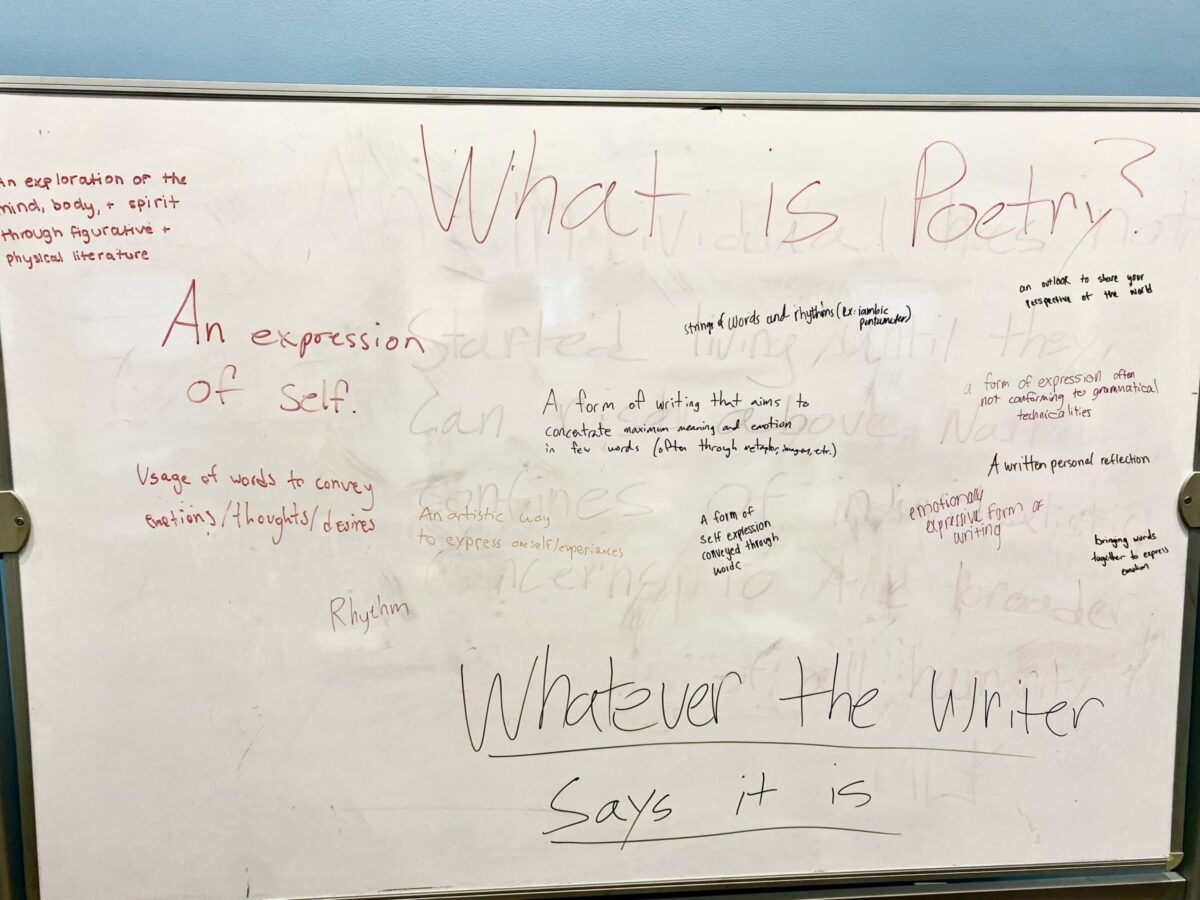 What is Poetry?
An exploration of the
mind, body, + spirit
through figurative +
physical literature
An expression
of self.
strings of words and rhythms (ex: iambic
pentameter)
an outlook to share your
perspective of the world
A form of writing that aims to
concentrate maximum meaning and emotion
in few words (often through metaphor, images, etc.)
a form of expression often
not conforming to grammatical
technicalities
A written personal reflection
Usage of words to convey
emotions/thoughts/desires
An artistic way
to express oneself/experiences
A form of
self expression
conveyed through
words
emotionally
expressive form of
writing
bringing words
together to express
emotion
Rhythm
Whatever the Writer
Says it is